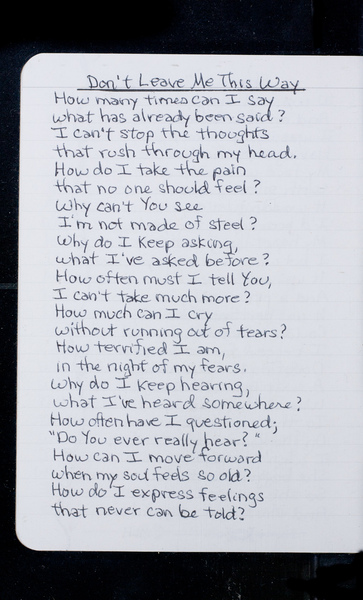 Don't Leave Me This Way
How many times can I say
what has already been said?
I can't stop the thoughts
that rush through my head.
How do I take the pain
that no one should feel?
Why can't You see
I'm not made of steel?
Why do I keep asking,
what I've asked before?
How often must I tell You,
I can't take much more?
How much can I cry
without running out of tears?
How terrified I am,
in the night of my fears.
Why do I keep hearing,
what I've heard somewhere?
How often have I questioned;
"Do You ever really hear?"
How can I move forward
when my soul feels so old?
How do I express feelings
that never can be told?